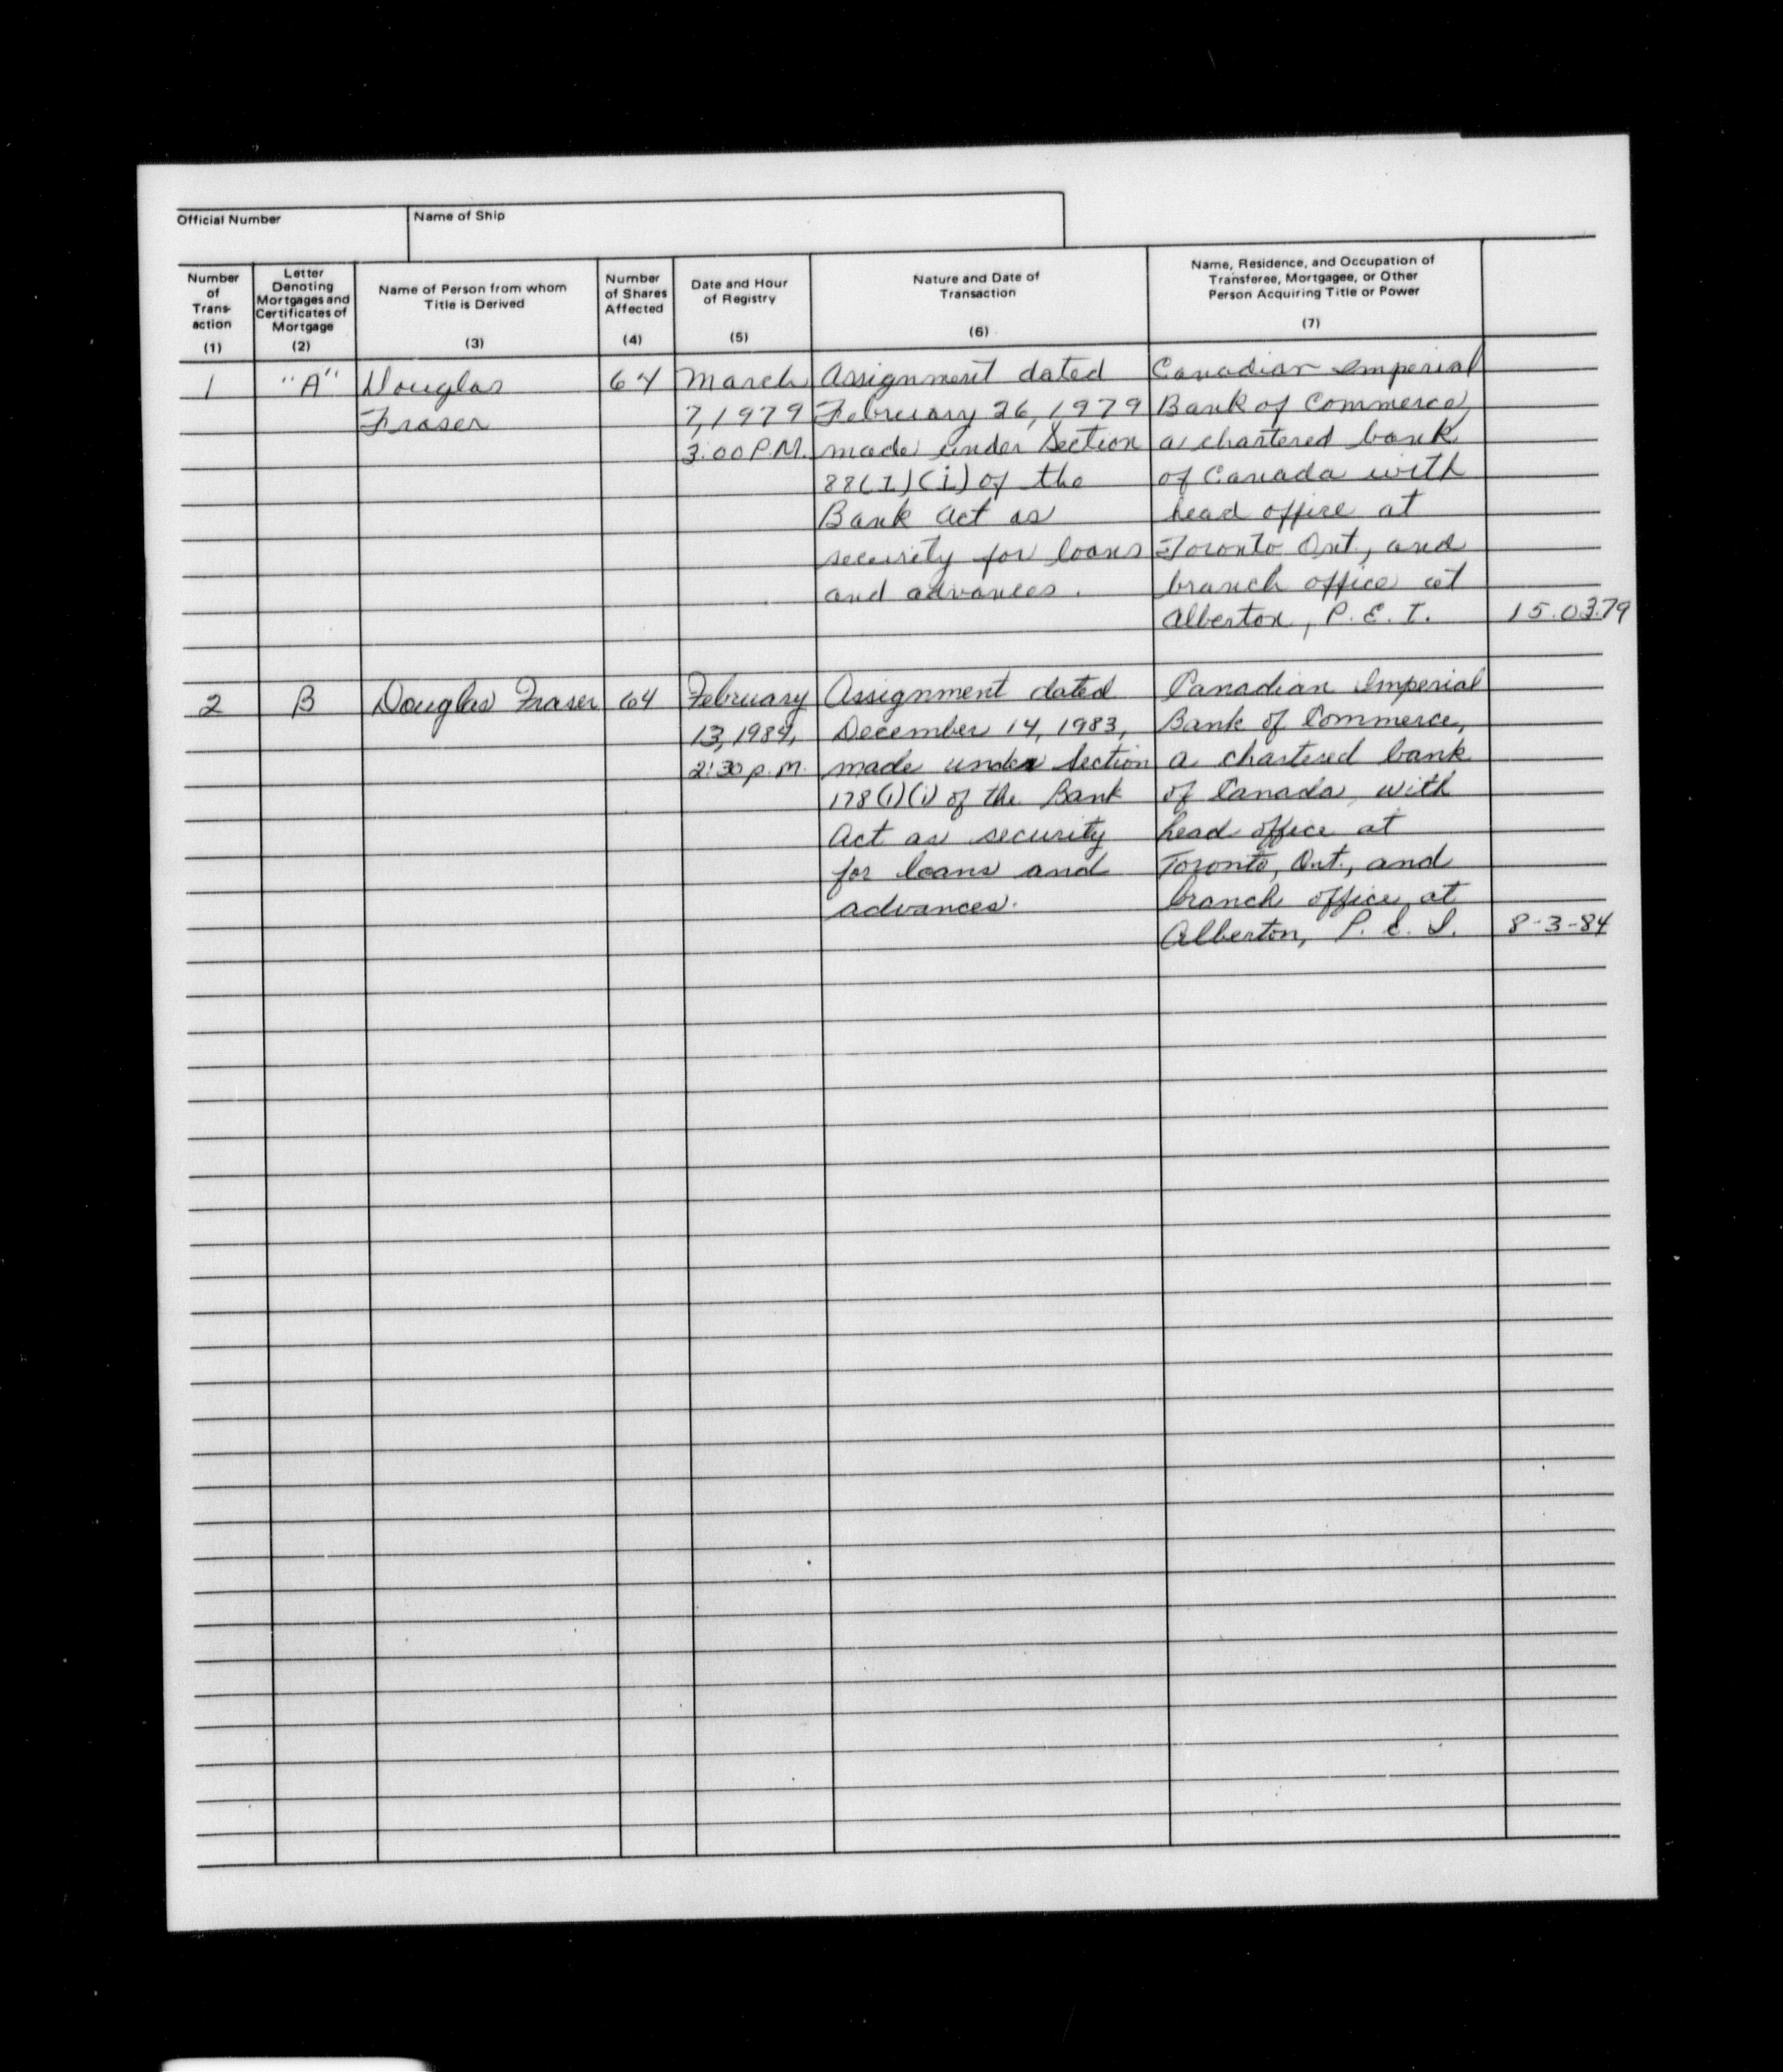 Official Number
Name of Ship
Number
of
Trans-
action
(1)
Letter
Denoting
Mortgages and
Certificates of
Mortgage
(2)
Name of Person from whom
Title is Derived
(3)
Number
of Shares
Affected
(4)
Date and Hour
of Registry
(5)
Nature and Date of
Transaction
(6)
Name, Residence, and Occupation of
Transferee, Mortgagee, or Other
Person Acquiring Title or Power
(7)
1
"A"
Douglas
Fraser
64
March
7, 1979
3:00 P.M.
Assignment dated
February 26, 1979
made under Section
88(1)(i) of the
Bank Act as
security for loans
and advances.
Canadian Imperial
Bank of Commerce,
a chartered bank
of Canada with
head office at
Toronto Ont., and
branch office at
Alberton, P.E.I.
15.03.79
2
B
Douglas Fraser
64
February
13, 1984,
2:30 p.M.
Assignment dated
December 14, 1983,
made under Section
178(1)(i) of the Bank
Act as security
for loans and
advances.
Canadian Imperial
Bank of Commerce,
a chartered bank
of Canada, with
head office at
Toronto, Ont., and
branch office at
Alberton, P.E.I.
8-3-84